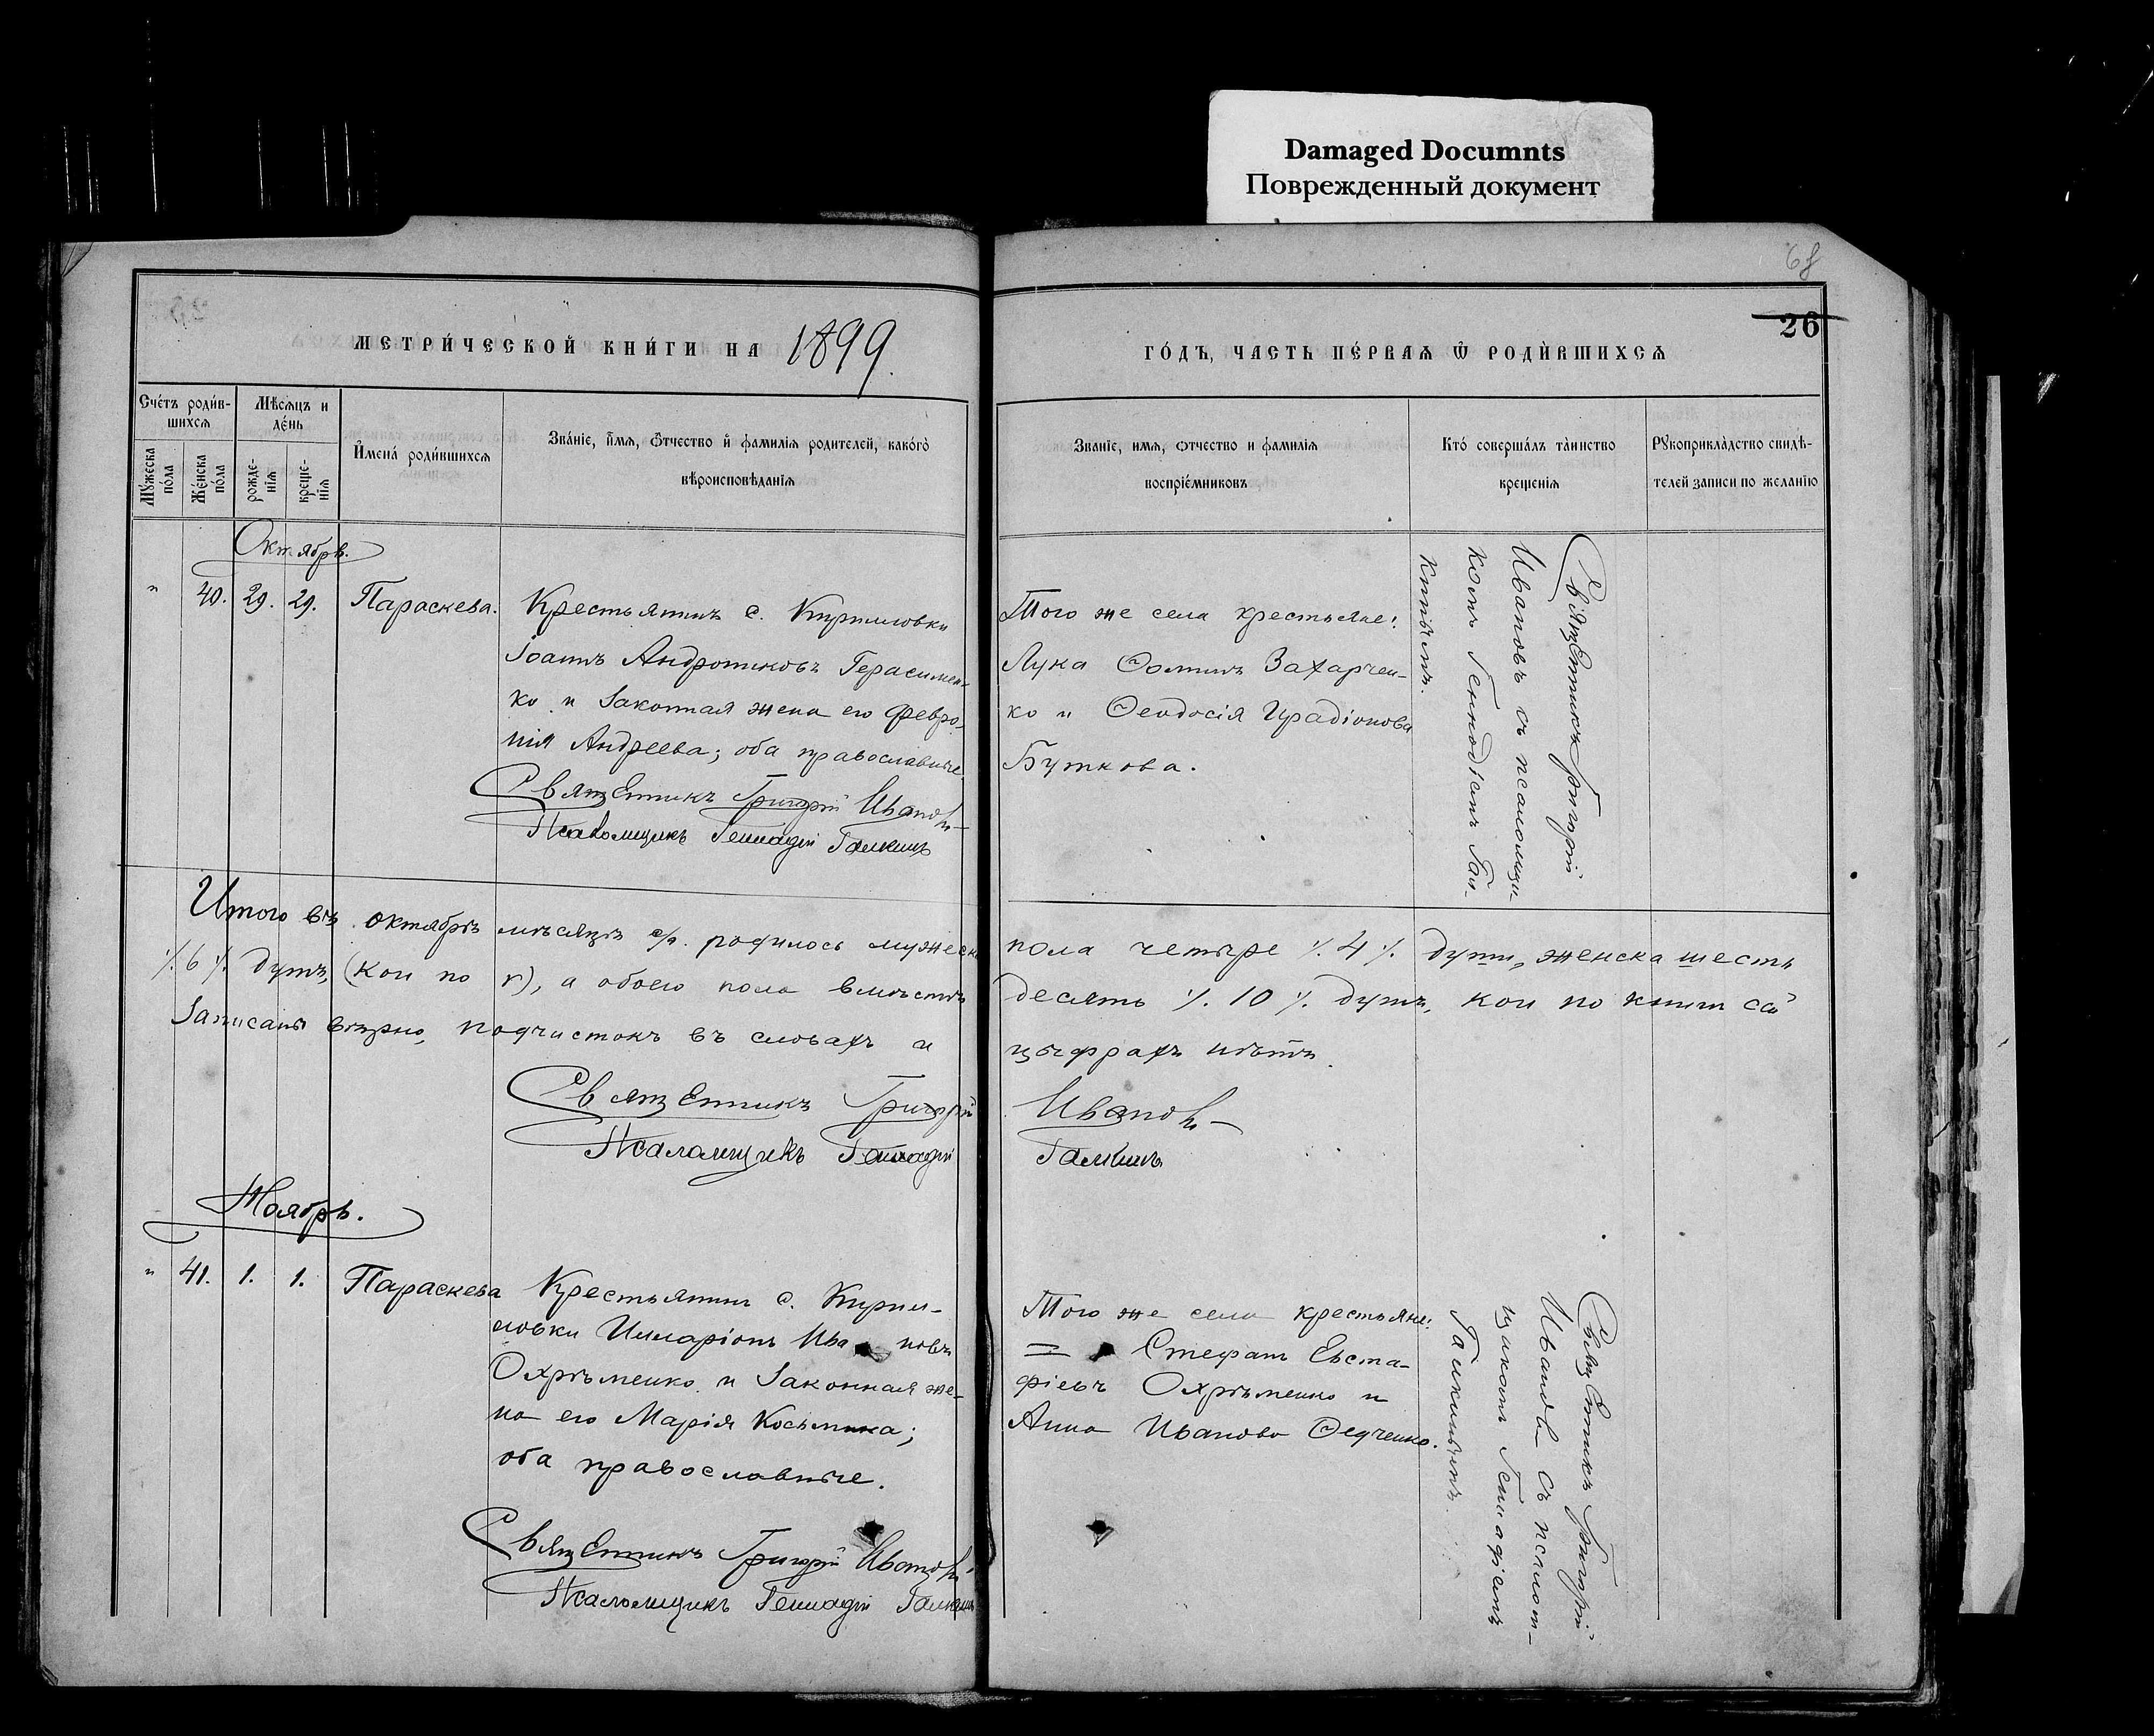 Damaged Documnts
Поврежденный документ
68
26
МЕТРИ́ЧЕСКОЙ КНИ́ГИ НА 1899.
ГО́ДЪ, ЧАСТЬ ПЕ́РВАЯ Ѡ РОДИ́ВШИХСЯ
Сче́тъ роди́в-
шихся
Мѣ́сяцъ и
де́нь
Му́жеска
по́ла
Же́нска
по́ла
рожде-
нія
креще-
нія
Имена́ роди́вшихся
Зва́ніе, имя, о́тчество и фамилія родителей, како́го
вѣроисповѣданія
Званіе, имя, отчество и фамилія
воспріе́мниковъ
Кто́ соверша́лъ та́инство
крещенія
Рукоприкла́дство свидѣ-
телей записи по желанію
Октябрь.
" 40. 29. 29. Параскева.
Крестьянинъ с. Кирилловки
Іоаннъ Андрониковъ Герасимен-
ко и законная жена его Февро-
нія Андреева; оба православные.
Священникъ Григорій Ивановъ
Псаломщикъ Геннадій Галкинъ
Того же села крестьяне:
Лука Ѳоминъ Захарчен-
ко и Ѳеодосія Ирадіонова
Буткова.
Священникъ Григорій
Ивановъ съ псаломщи-
комъ Геннадіемъ Гал-
кинымъ.
Итого въ октябрѣ мѣсяцѣ с/г. родилось мужеск
пола четыре ·/. 4 ·/. души, женска шесть
·/. 6 ·/. душъ, (кои по г), а обоего пола вмѣстѣ
десять ·/. 10 ·/. душъ, кои по книгѣ сей
записаны вѣрно, подчистокъ въ словахъ и
цыфрахъ нѣтъ.
Священникъ Григорій Ивановъ
Псаломщикъ Геннадій Галкинъ
Ноябрь.
" 41. 1. 1. Параскева
Крестьянинъ с. Кирил-
ловки Илларіонъ Ива новъ
Охрѣменко и законная же-
на его Марія Косьмина;
оба православные.
Священникъ Григорій Ивановъ
Псаломщикъ Геннадій Галкинъ
Того же села крестьяне:
= Стефанъ Евста-
фіевъ Охрѣменко и
Анна Иванова Ѳедченко.
Священникъ Григорій
Ивановъ съ псалом-
щикомъ Геннадіемъ
Галкинымъ.